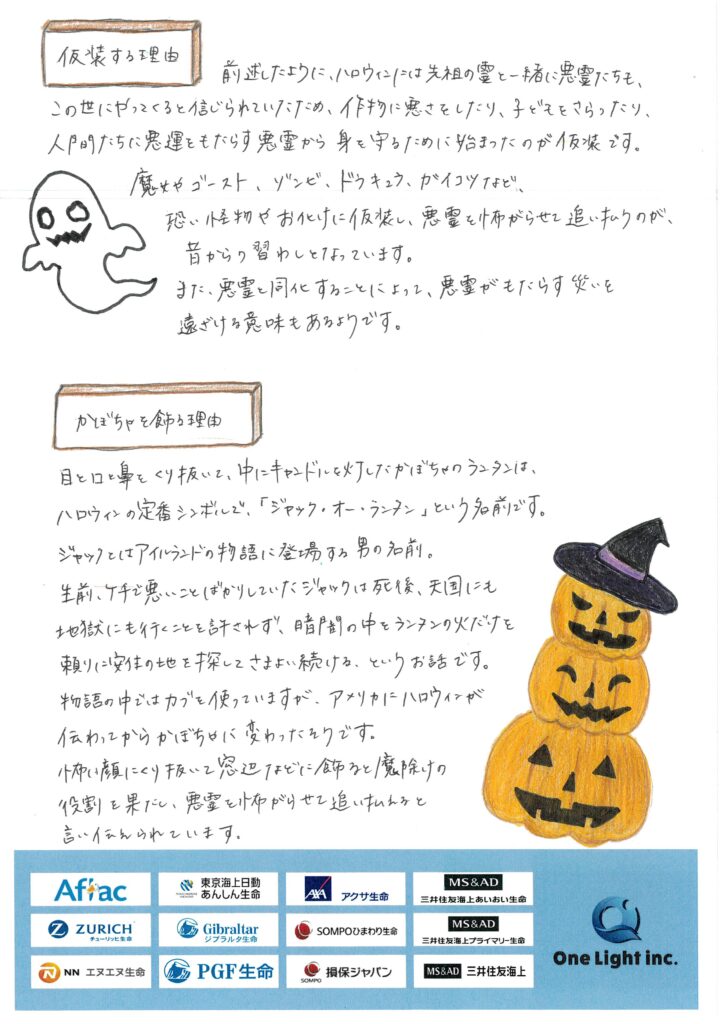 仮装する理由
前述したように、ハロウィンには先祖の霊と一緒に悪霊たちも、
この世にやってくると信じられていたため、作物に悪さをしたり、子どもをさらったり、
人間たちに悪運をもたらす悪霊から身を守るために始まったのが仮装です。
魔女やゴースト、ゾンビ、ドラキュラ、ガイコツなど、
恐い怪物やお化けに仮装し、悪霊を怖がらせて追い払うのが、
昔からの習わしとなっています。
また、悪霊と同化することによって、悪霊がもたらす災いを
遠ざける意味もあるようです。
かぼちゃを飾る理由
目と口と鼻をくり抜いて、中にキャンドルを灯したかぼちゃのランタンは、
ハロウィンの定番シンボルで、「ジャック・オー・ランタン」という名前です。
ジャックとはアイルランドの物語に登場する男の名前。
生前、ケチで悪いことばかりしていたジャックは死後、天国にも
地獄にも行くことを許されず、暗闇の中をランタンの火だけを
頼りに安住の地を探してさまよい続ける、というお話です。
物語の中ではカブを使っていますが、アメリカにハロウィンが
伝わってからかぼちゃに変わったそうです。
怖い顔にくり抜いて窓辺などに飾ると魔除けの
役割を果たし、悪霊を怖がらせて追い払えると
言い伝えられています。
Aflac
東京海上日動
あんしん生命
AXA アクサ生命
MS&AD
三井住友海上あいおい生命
ZURICH
チューリッヒ生命
Gibraltar
ジブラルタ生命
SOMPOひまわり生命
MS&AD
三井住友海上プライマリー生命
NN エヌエヌ生命
PGF生命
SOMPO 損保ジャパン
MS&AD 三井住友海上
One Light inc.